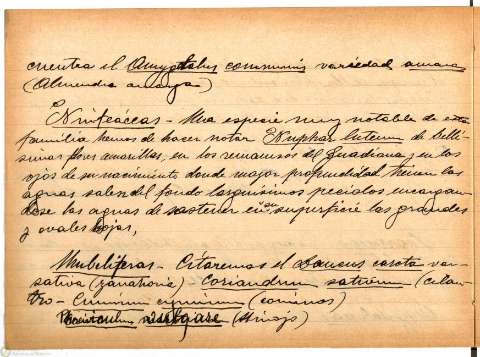 cuentra el Amygdalus communis variedad amara
(Almendra amarga)
Ninfeáceas - Una especie muy notable de esta
familia hemos de hacer notar Nuphar luteum de belli-
simas flores amarillas, en los remansos del Guadiana y en los
ojos de su nacimiento donde mayor profundidad tienen las
aguas salen del fondo larguisimos peciolos encargan-
dose las aguas de sostener en su superficie las grandes
y ovales hojas,
Umbeliferas - Citaremos el Daucus carota var-
sativa (zanahoria) Coriandrum sativum (cilan-
tro - Cuminum cyminum (cominos)
Foeniculum vulgare (Hinojo)